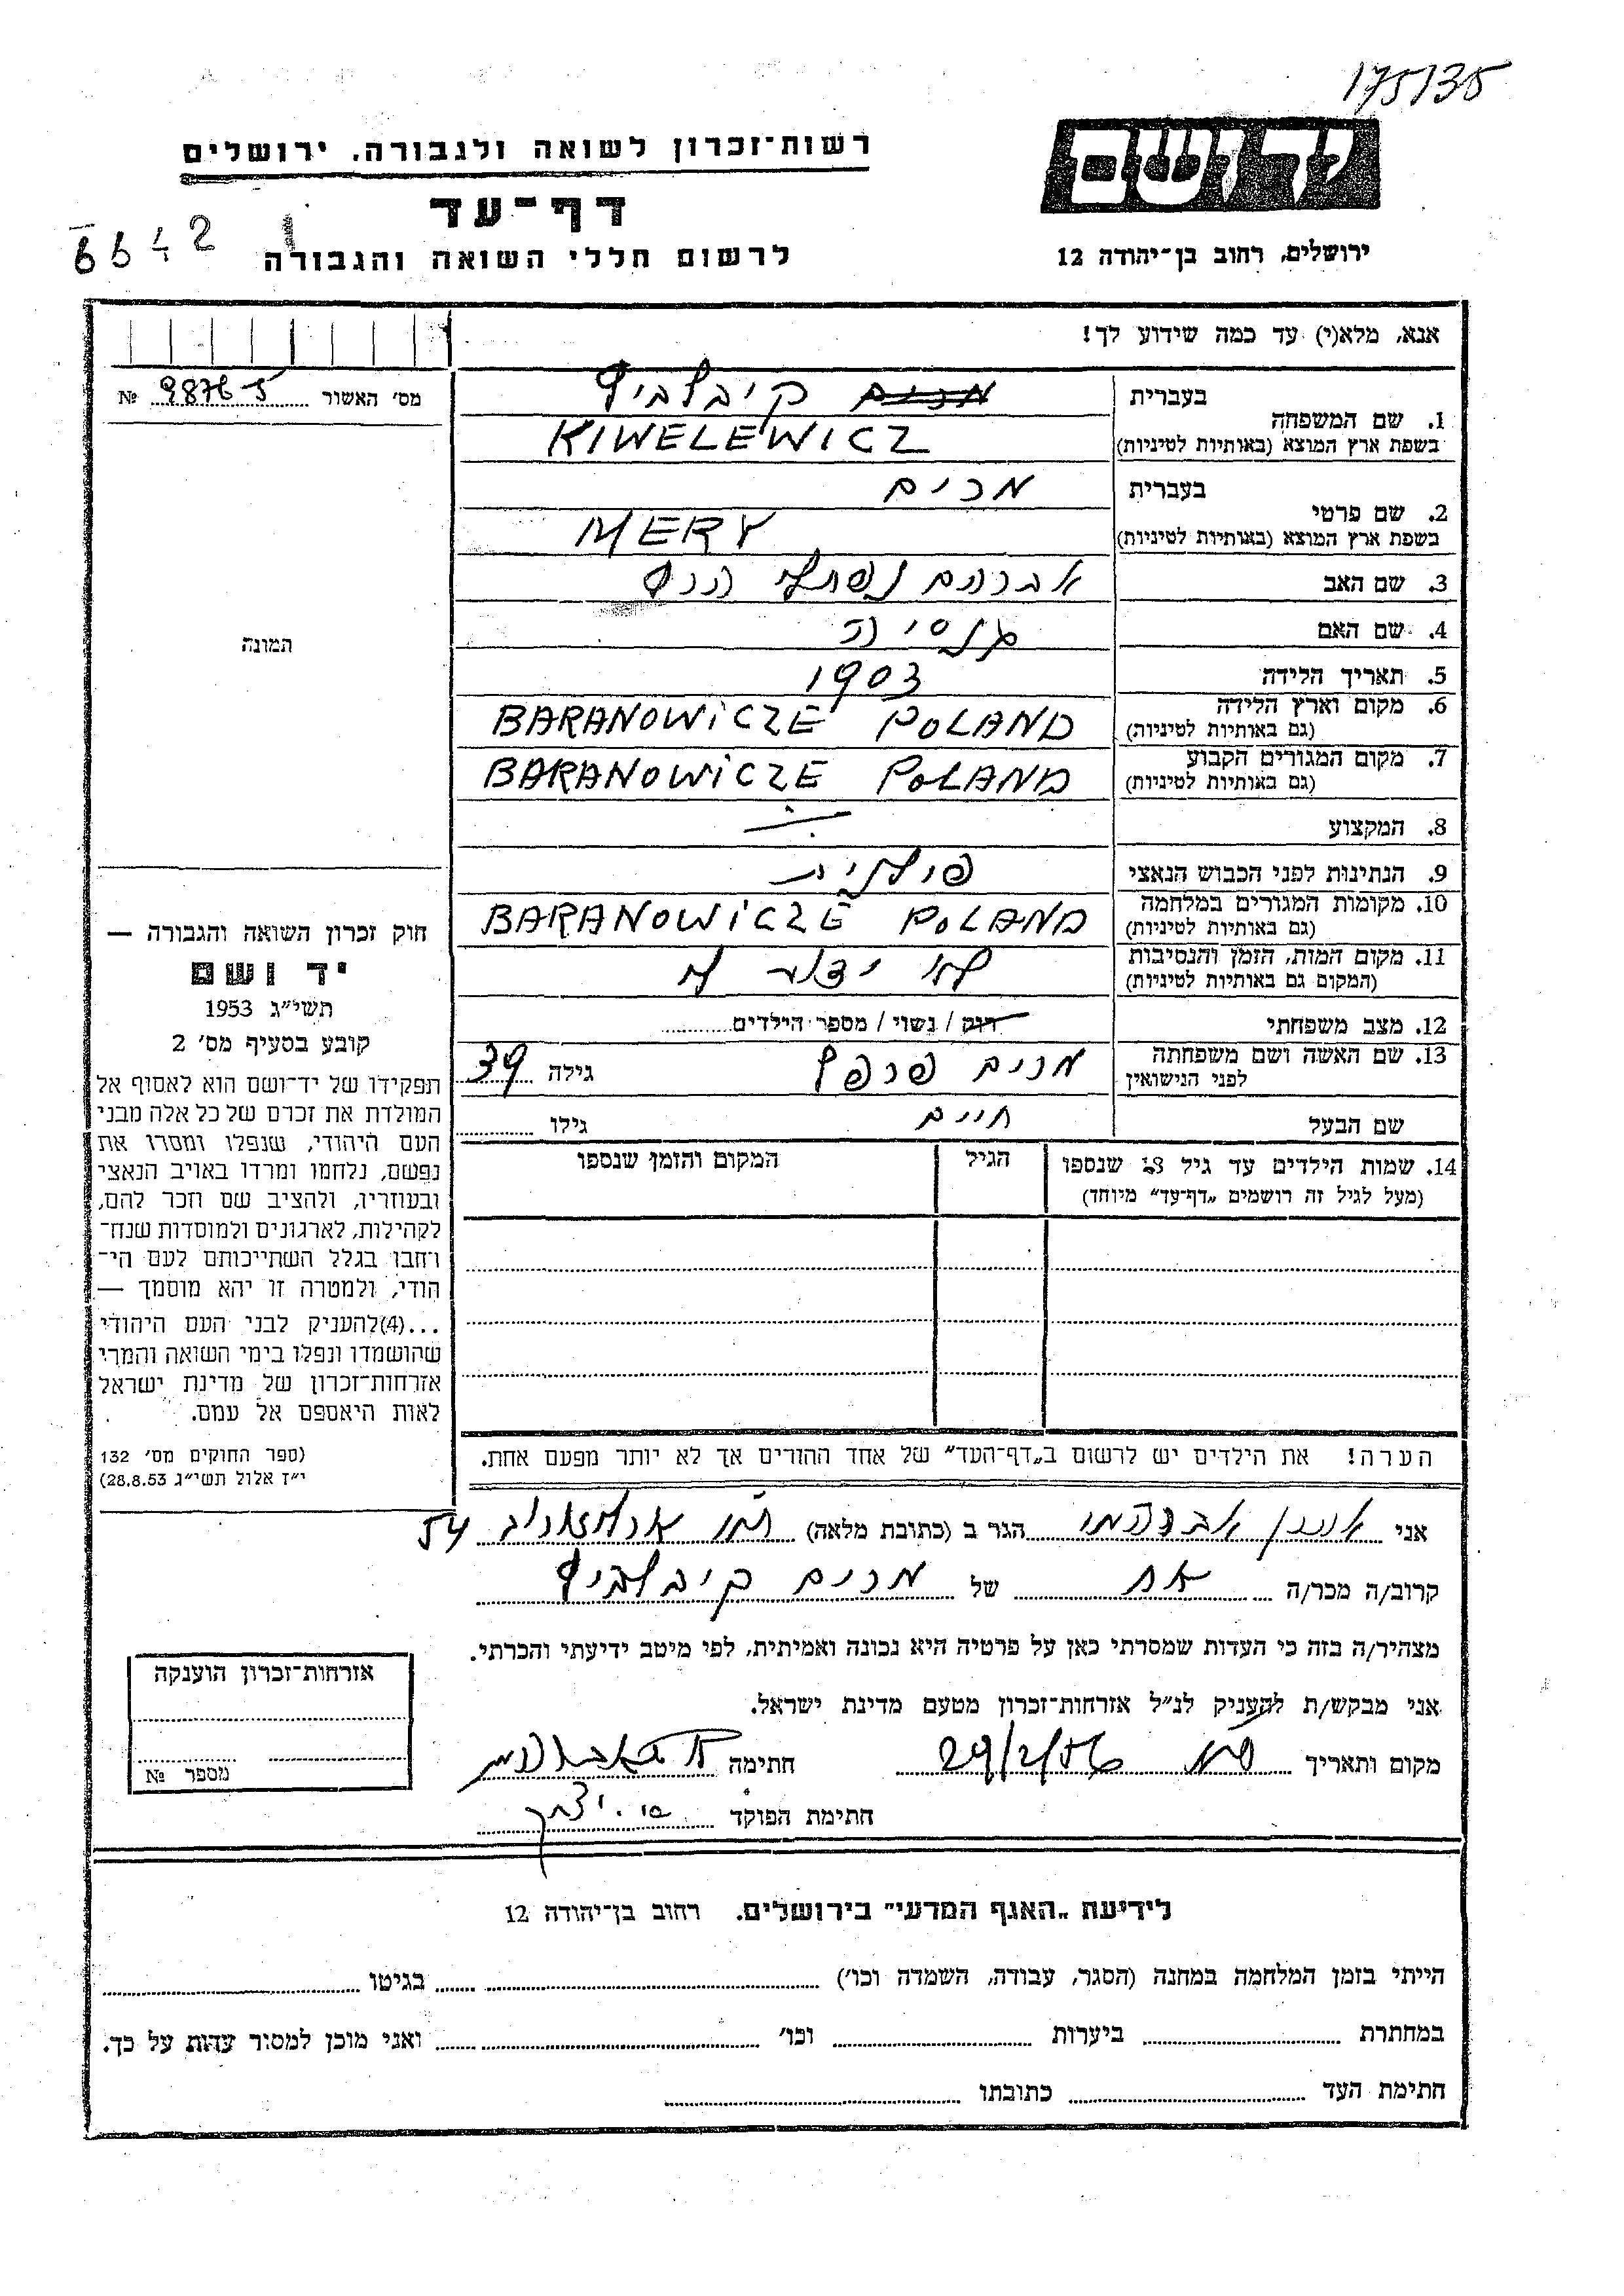 175135
רשות־זכרון לשואה ולגבורה, ירושלים
יד ושם
דף־עד
ירושלים, רחוב בן־יהודה 12
לרשום חללי השואה והגבורה
אנא, מלא(י) עד כמה שידוע לך!
מס' האשור № 98765
1. שם המשפחה בעברית מרים קיבלביץ
בשפת ארץ המוצא (באותיות לטיניות) KIWELEWICZ
2. שם פרטי בעברית מרים
בשפת ארץ המוצא (באותיות לטיניות) MERY
3. שם האב אברהם נפתלי
4. שם האם
5. תאריך הלידה 1903
6. מקום וארץ הלידה (גם באותיות לטיניות) BARANOWICZE POLAND
7. מקום המגורים הקבוע (גם באותיות לטיניות) BARANOWICZE POLAND
8. המקצוע
9. הנתינות לפני הכבוש הנאצי פולנית
10. מקומות המגורים במלחמה (גם באותיות לטיניות) BARANOWICZE POLAND
11. מקום המות, הזמן והנסיבות (המקום גם באותיות לטיניות) לא ידוע
12. מצב משפחתי רוק / נשוי / מספר הילדים
13. שם האשה ושם משפחתה לפני הנישואין מרים גילה 39
שם הבעל חיים גילו
14. שמות הילדים עד גיל 18 שנספו הגיל המקום והזמן שנספו
(מעל לגיל זה רושמים „דף־עד" מיוחד)
הערה! את הילדים יש לרשום ב„דף־העד" של אחד ההורים אך לא יותר מפעם אחת.
התמונה
חוק זכרון השואה והגבורה —
יד ושם
תשי"ג 1953
קובע בסעיף מס' 2
תפקידו של יד־ושם הוא לאסוף אל
המולדת את זכרם של כל אלה מבני
העם היהודי, שנפלו ומסרו את
נפשם, נלחמו ומרדו באויב הנאצי
ובעוזריו, ולהציב שם וזכר להם,
לקהילות, לארגונים ולמוסדות שנח־
רבו בגלל השתייכותם לעם הי־
הודי, ולמטרה זו יהא מוסמך —
...(4)להעניק לבני העם היהודי
שהושמדו ונפלו בימי השואה והמרי
אזרחות־זכרון של מדינת ישראל
לאות היאספם אל עמם.
(ספר החוקים מס' 132
י"ז אלול תשי"ג 28.8.53)
אני אברהמי הגר ב (כתובת מלאה) 54
קרוב/ה מכר/ה אח של מרים קיבלביץ
מצהיר/ה בזה כי העדות שמסרתי כאן על פרטיה היא נכונה ואמיתית, לפי מיטב ידיעתי והכרתי.
אני מבקש/ת להעניק לנ"ל אזרחות־זכרון מטעם מדינת ישראל.
מקום ותאריך 29/2/56 חתימה
חתימת הפוקד
אזרחות־זכרון הוענקה
מספר №
לידיעת „האגף המדעי" בירושלים. רחוב בן־יהודה 12
הייתי בזמן המלחמה במחנה (הסגר, עבודה, השמדה וכו') בגיטו
במחתרת ביערות וכו' ואני מוכן למסור עדות על כך.
חתימת העד כתובתו